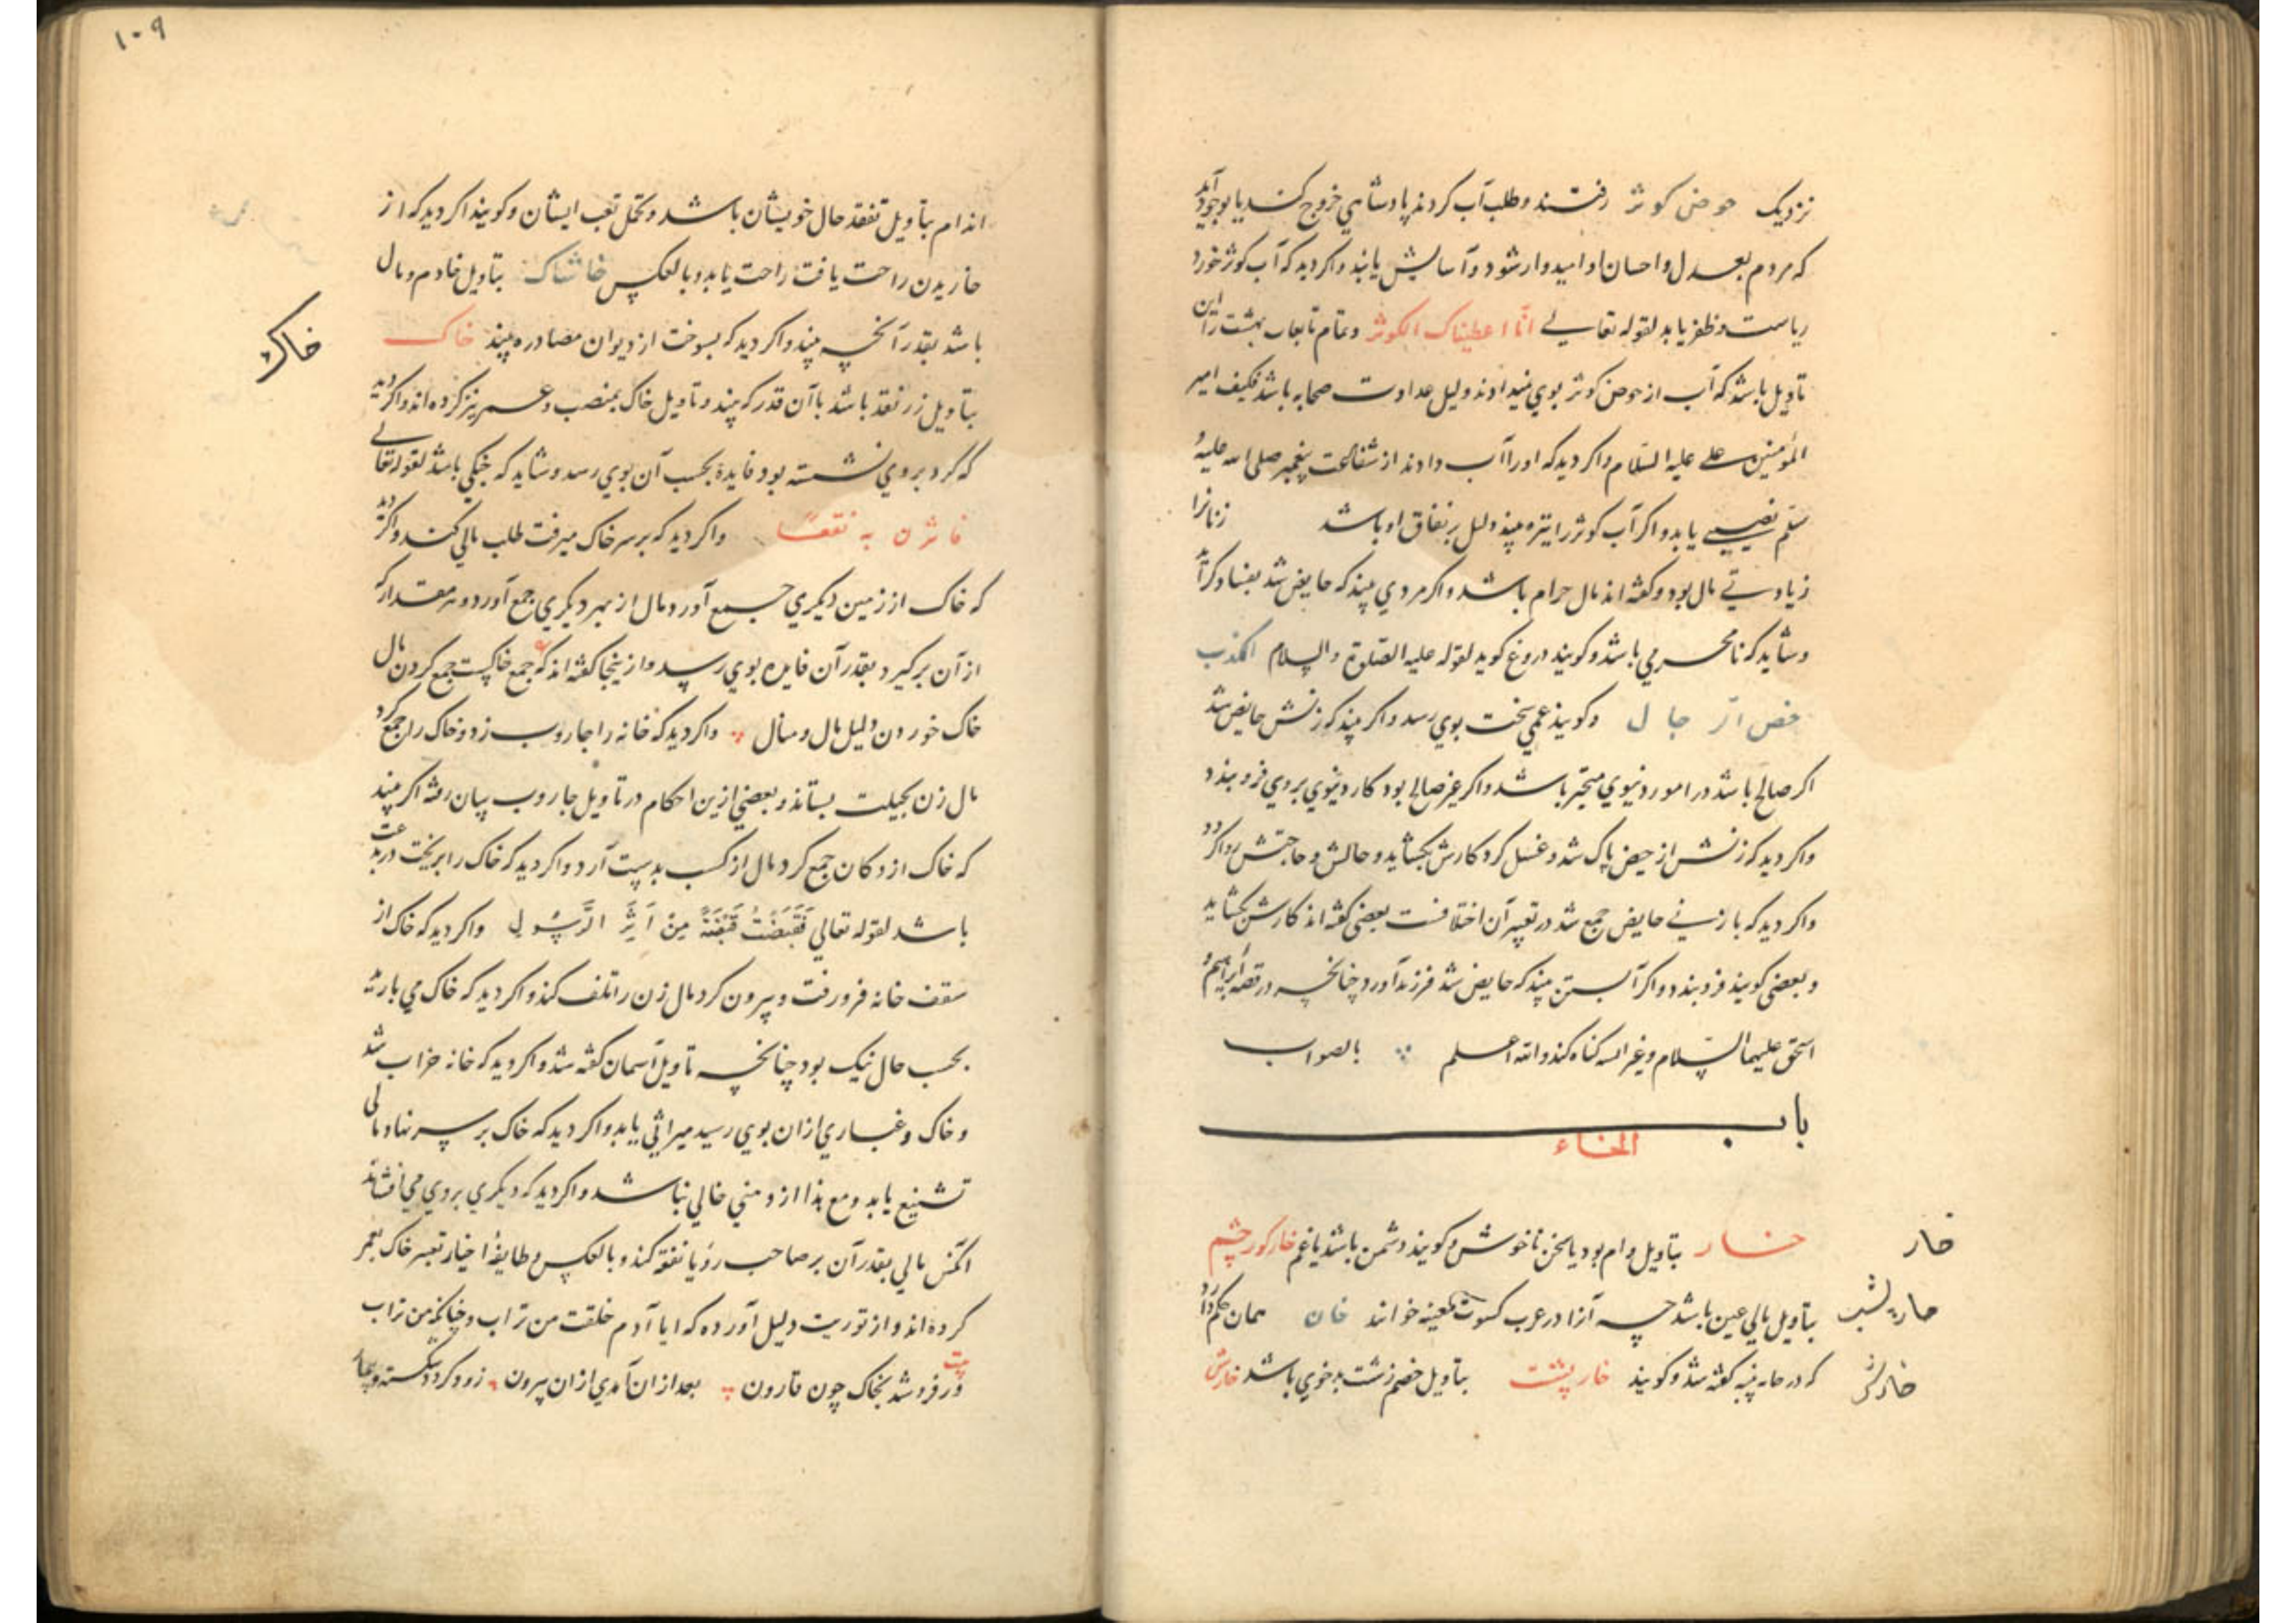 نزدیک حوض کوثر رفتند و طلب آب کردند پادشاهی خروج کند یا بوجود آید
که مردم بعدل و احسان او امیدوار شود و آسایش یابند و اکر دید که آب کوثر خورد
ریاست و ظفر یابد لقوله تعالی انّا اعطیناک الکوثر و تمام تابعان بهشت را این
تأویل باشد که آب از حوض کوثر بوی نمیدادند دلیل عداوت صحابه باشد فکیف امیر
المؤمنین علی علیه السّلام و اکر دید که او را آب دادند از شفاعت پیغمبر صلی الله علیه و
سلّم نصیبی یابد و اکر آب کوثر را تیره بیند دلیل بر نفاق او باشد زنانرا
زیادتی مال بود و کفته اند مال حرام باشد و اکر مردی بیند که حایض شد بفساد کراید
و شاید که نامحرمی باشد و کویند دروغ کوید لقوله علیه الصلوة و السلام الکذب
حیض الرّجال و کویند غمی سخت بوی رسد و اکر بیند که زنش حایض شد
اکر صالح باشد در امور دنیوی متحیّر باشد و اکر غیر صالح بود کار دنیوی بر وی فرو بندد
و اکر دید که زنش از حیض پاک شد و غسل کرد کارش بکشاید و حالش و حاجتش روا کردد
و اکر دید که با زنی حایض جمع شد در تعبیر آن اختلافست بعضی کفته اند کارش بکشاید
و بعضی کویند فرو بندد و اکر آبستن بیند که حایض شد فرزند آورد چنانچه در قصه ابراهیم و
اسحق علیهما السّلام و غیر آبسه کناه کند و الله اعلم بالصواب
باب
الخاء
خار
خار بتأویل وام بود یا سخن ناخوش و کویند دشمن باشد یا غم خار کور چشم
بتأویل مالی عین باشد چه آنرا در عرب کسوت کعینه خوانند خان همان حکم دارد
خارپشت
که در خانه کفته شد و کویند خارپشت بتأویل خصم زشت بدخوی باشد خارش
خارش
۱۰۹
اندام بتأویل تفقد حال خویشان باشد و تحمل تعب ایشان و کویند اکر دید که از
خاریدن راحت یافت راحت یابد و بالعکس خاشاک بتأویل خادم و مال
باشد بقدر آنچه بیند و اکر دید که بسوخت از دیوان مصادره بیند خاک
خاک
بتأویل زر نقد باشد با آن قدر که بیند و تأویل خاک بمنصب و عمر نیز کرده اند و اکر دید
که کرد بر وی نشسته بود فایده بحسب آن بوی رسد و شاید که جنکی باشد لقوله تعالی
فاثرن به نقعًا و اکر دید که بر سر خاک میرفت طلب مالی کند و اکر دید
که خاک از زمین دیکری جمع آورد مال از بهر دیکری جمع آورد و هر مقدار که
از آن برکیرد بقدر آن فایده بوی رسد و از ینجا کفته اند که ع جمع خاکست جمع کردن مال
خاک خوردن دلیل مال و منال و اکر دید که خانه را جاروب زد و خاک را جمع کرد
مال زن بحیلت بستاند و بعضی ازین احکام در تأویل جاروب بیان رفته اکر بیند
که خاک از دکان جمع کرد مال از کسب بدست آرد و اکر دید که خاک را بریخت در بدعت
باشد لقوله تعالی فَقَبَضْتُ قَبْضَةً مِنْ اَثَرِ الرَّسُولِ و اکر دید که خاک از
سقف خانه فرو رفت و بیرون کرد مال زن را تلف کند و اکر دید که خاک می بارید
بحسب حال نیک بود چنانچه تأویل آسمان کفته شد و اکر دید که خانه خراب شد
و خاک و غباری ازان بوی رسید میراثی یابد و اکر دید که خاک بر سر نهاد مالی
تشنیع یابد و مع هذا از و منی خالی نباشد و اکر دید که دیکری بر وی می افشاند
آنکس مالی بقدر آن بر صاحب رؤیا نفقه کند و بالعکس و طایفهٔ اخیار تعبیر خاک بعمر
کرده اند و از توریت دلیل آورده که ایا آدم خلقت من تراب و من تراب
بیت
ور فرو شد بخاک چون قارون بعد ازان آمدی ازان بیرون زود کردد شکسته و بیمار